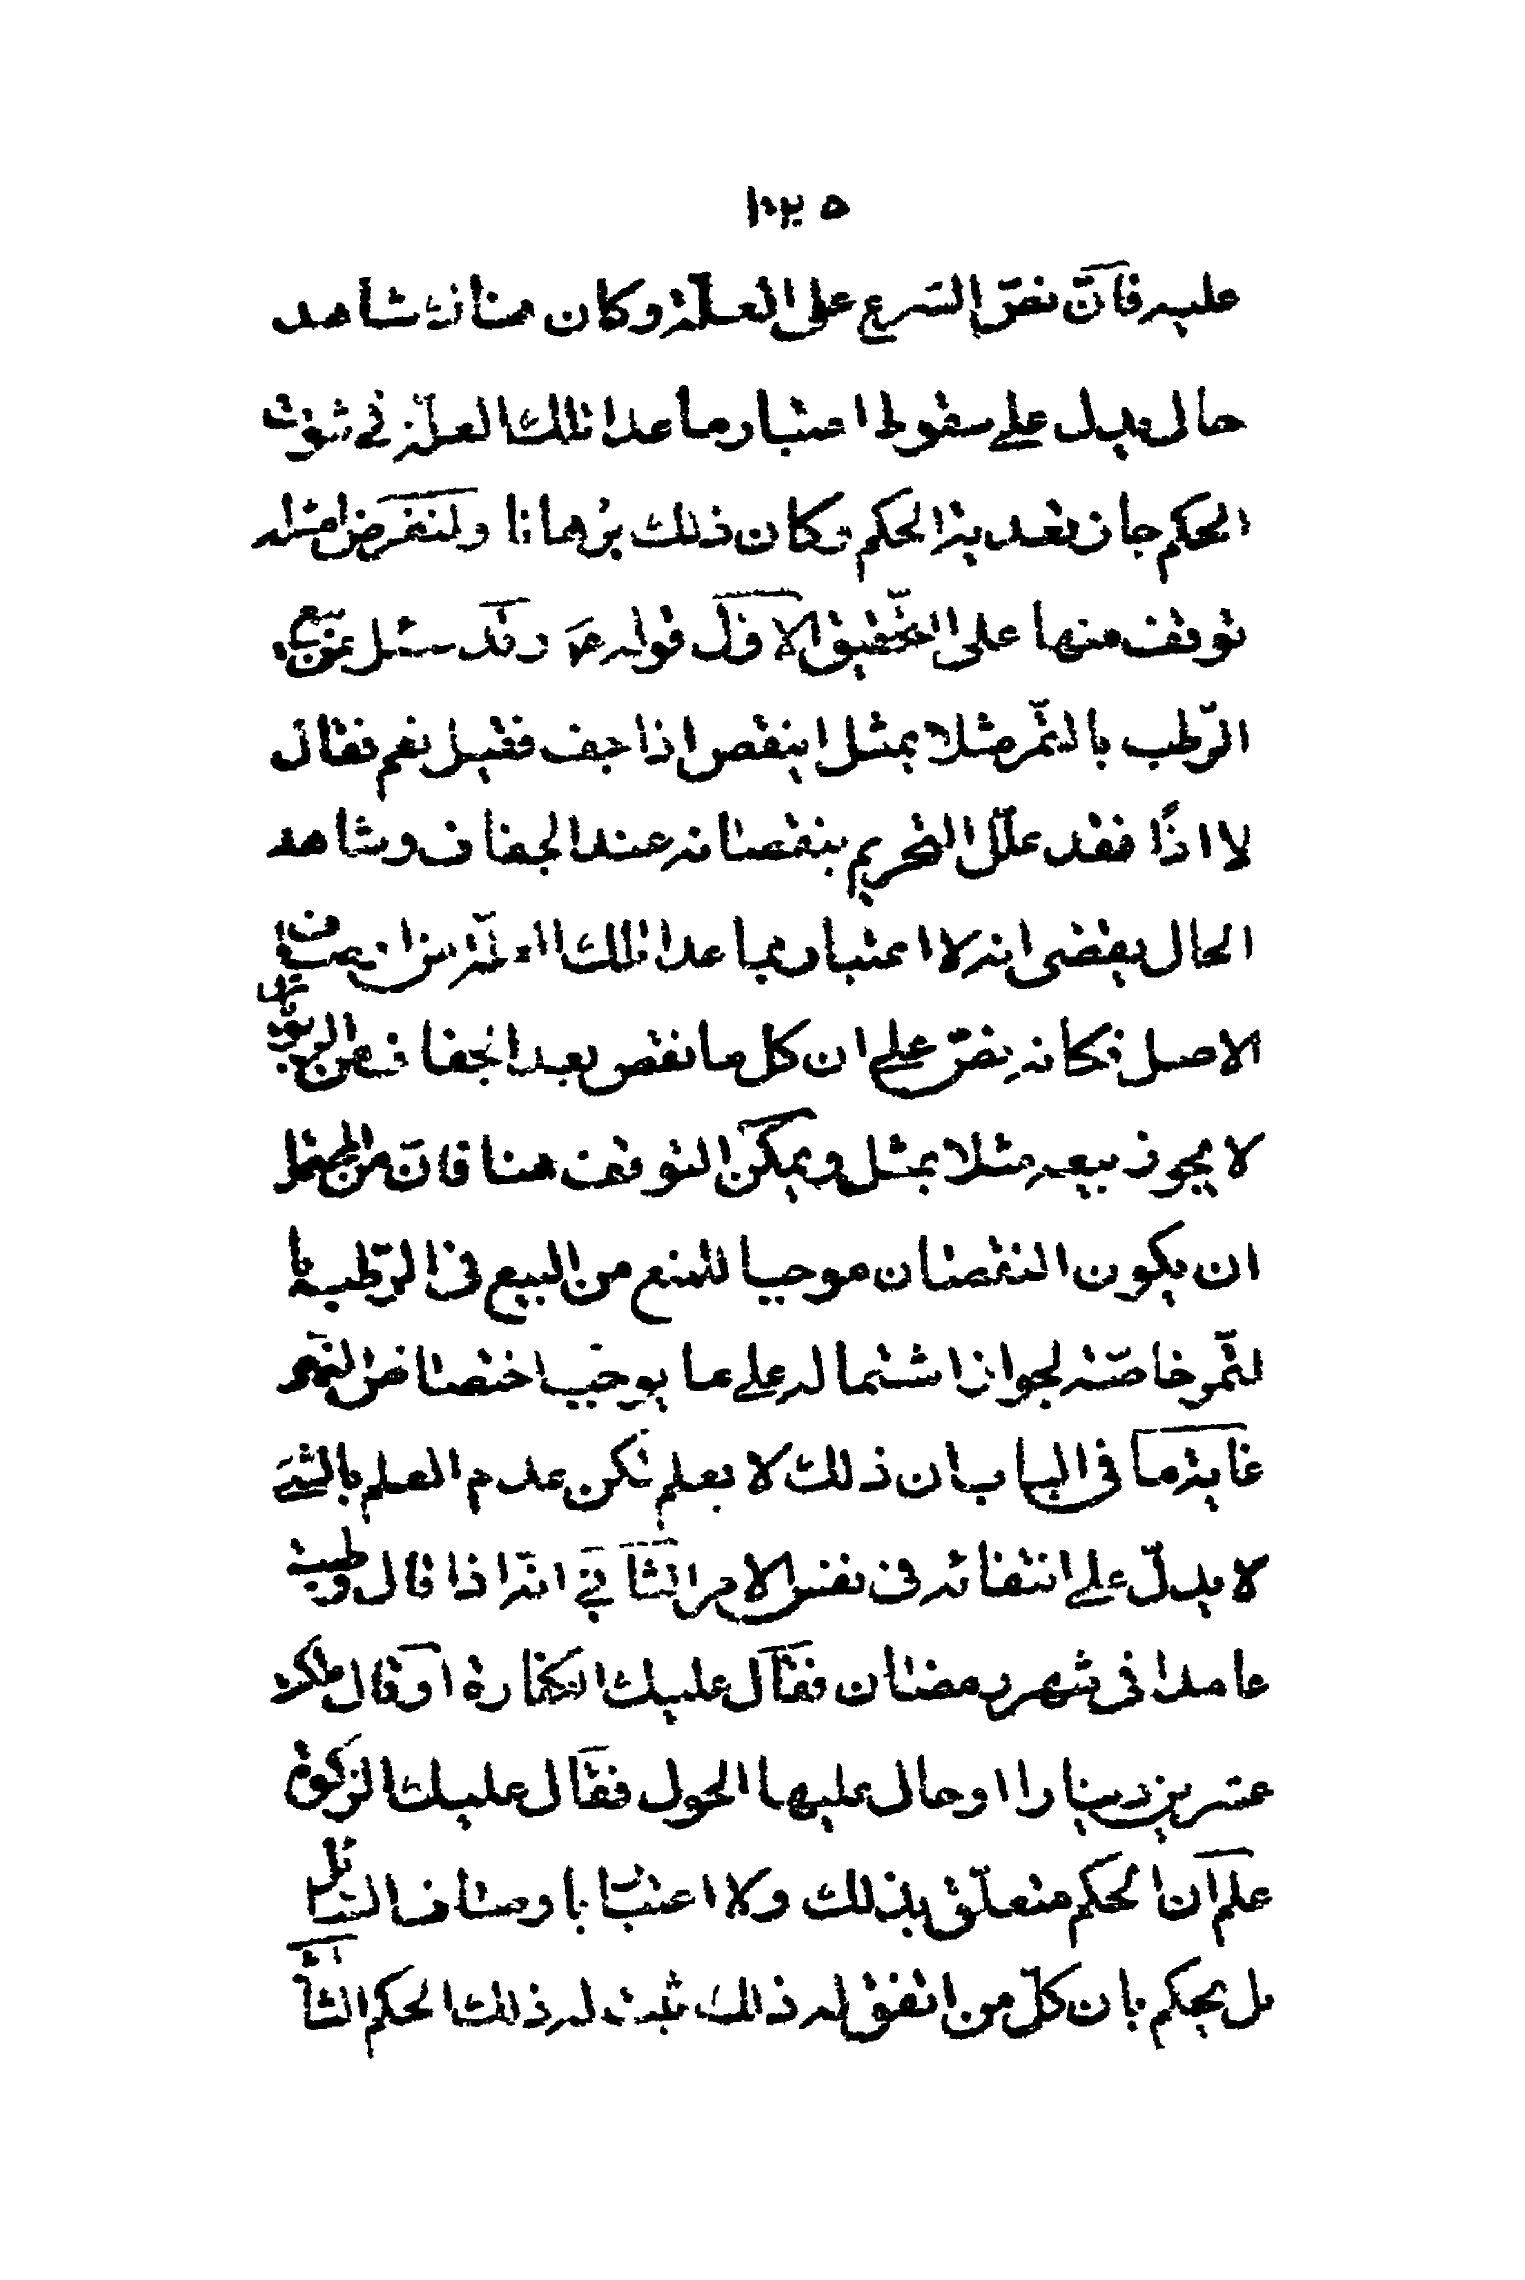 ١٠٢٥
عليه فانّ نصّ الشرع على العلّة وكان هناك شاهد
حال يدل على سقوط اعتبار ما عدا تلك العلة فى ثبوت
الحكم جاز تعدية الحكم وكان ذلك برهانا ولنفرض امثلة
توقف منها على التحقيق الاوّل قوله ع وقد سئل عن بيع
الرّطب بالتّمر مثلا بمثل اينقص اذا جف فقيل نعم فقال
لا اذًا فقد علّل التحريم بنقصانه عند الجفاف وشاهد
الحال يقضى انه لا اعتبار بما عدا تلك العلّة من اوصاف
الاصل فكانه نصّ على ان كل ما نقص بعد الجفاف من الربويّات
لا يجوز بيعه مثلا بمثل ويمكن التوقف هنا فانّ من المحتمل
ان يكون النقصان موجبا للمنع من البيع فى الرّطب با
لتّمر خاصّة لجواز اشتماله على ما يوجب اختصاص التمر
غاية ما فى الباب ان ذلك لا يعلم لكن عدم العلم بالشئ
لا يدلّ على انتفائه فى نفس الامر الثانى انّه اذا قال وطيت
عامدا فى شهر رمضان فقال عليك الكفارة او قال ملكت
عشرين دينارا وحال عليها الحول فقال عليك الزكوة
علم ان الحكم متعلّق بذلك ولا اعتبار باوصاف السائل
بل يحكم بان كلّ من اتفق له ذلك ثبت له ذلك الحكم الثا